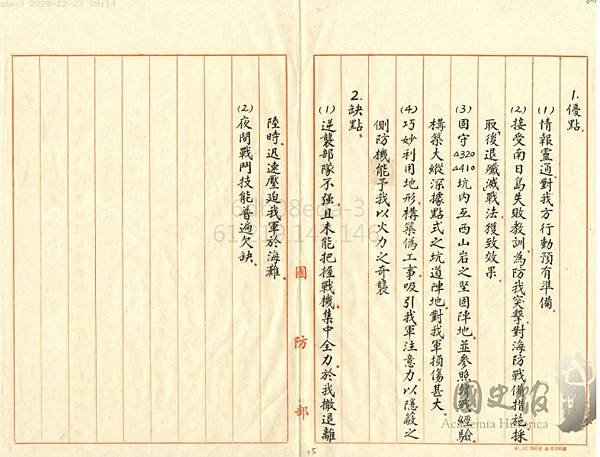 1.優點。
(1)情報靈通對我方行動預有準備。
(2)接受南日島失敗教訓為防我突擊對海防戰備措施採
取後退殲滅戰法獲致效果。
(3)固守△320△410坑內互西山岩之堅固陣地。並參照韓戰經驗
構築大縱深據點式之坑道陣地。對我軍損傷甚大。
(4)巧妙利用地形構築偽工事。吸引我軍注意力。以隱蔽之
側防機能予我以火力之奇襲
2.缺點。
(1)逆襲部隊不强且未能把握戰機。集中全力。於我撤退離
陸時。迅速壓迫我軍於海灘
(2)夜間戰鬥技能普遍欠缺。
國防部
國史館
Academia Historica
2020-12-23 09:14